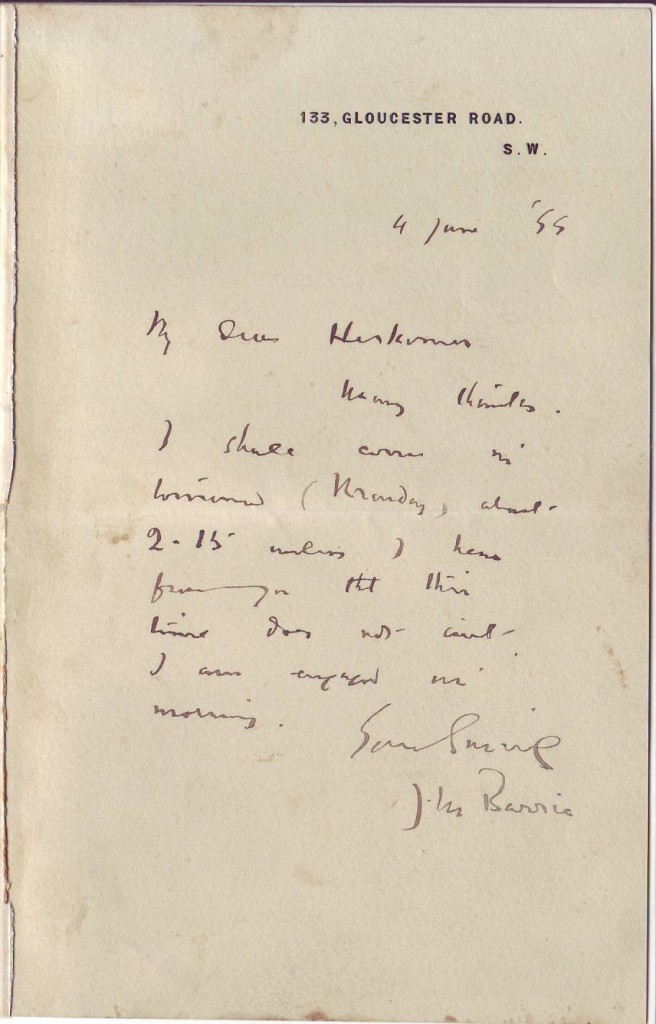 133, GLOUCESTER ROAD.
S. W.
4 June '99
My dear Herkomer
Many thanks.
I shall come in
tomorrow (Monday) about
2-15 unless I hear
from you tht this
time does not suit.
I am engaged in
morning.
Yours Sincerely
J. M. Barrie